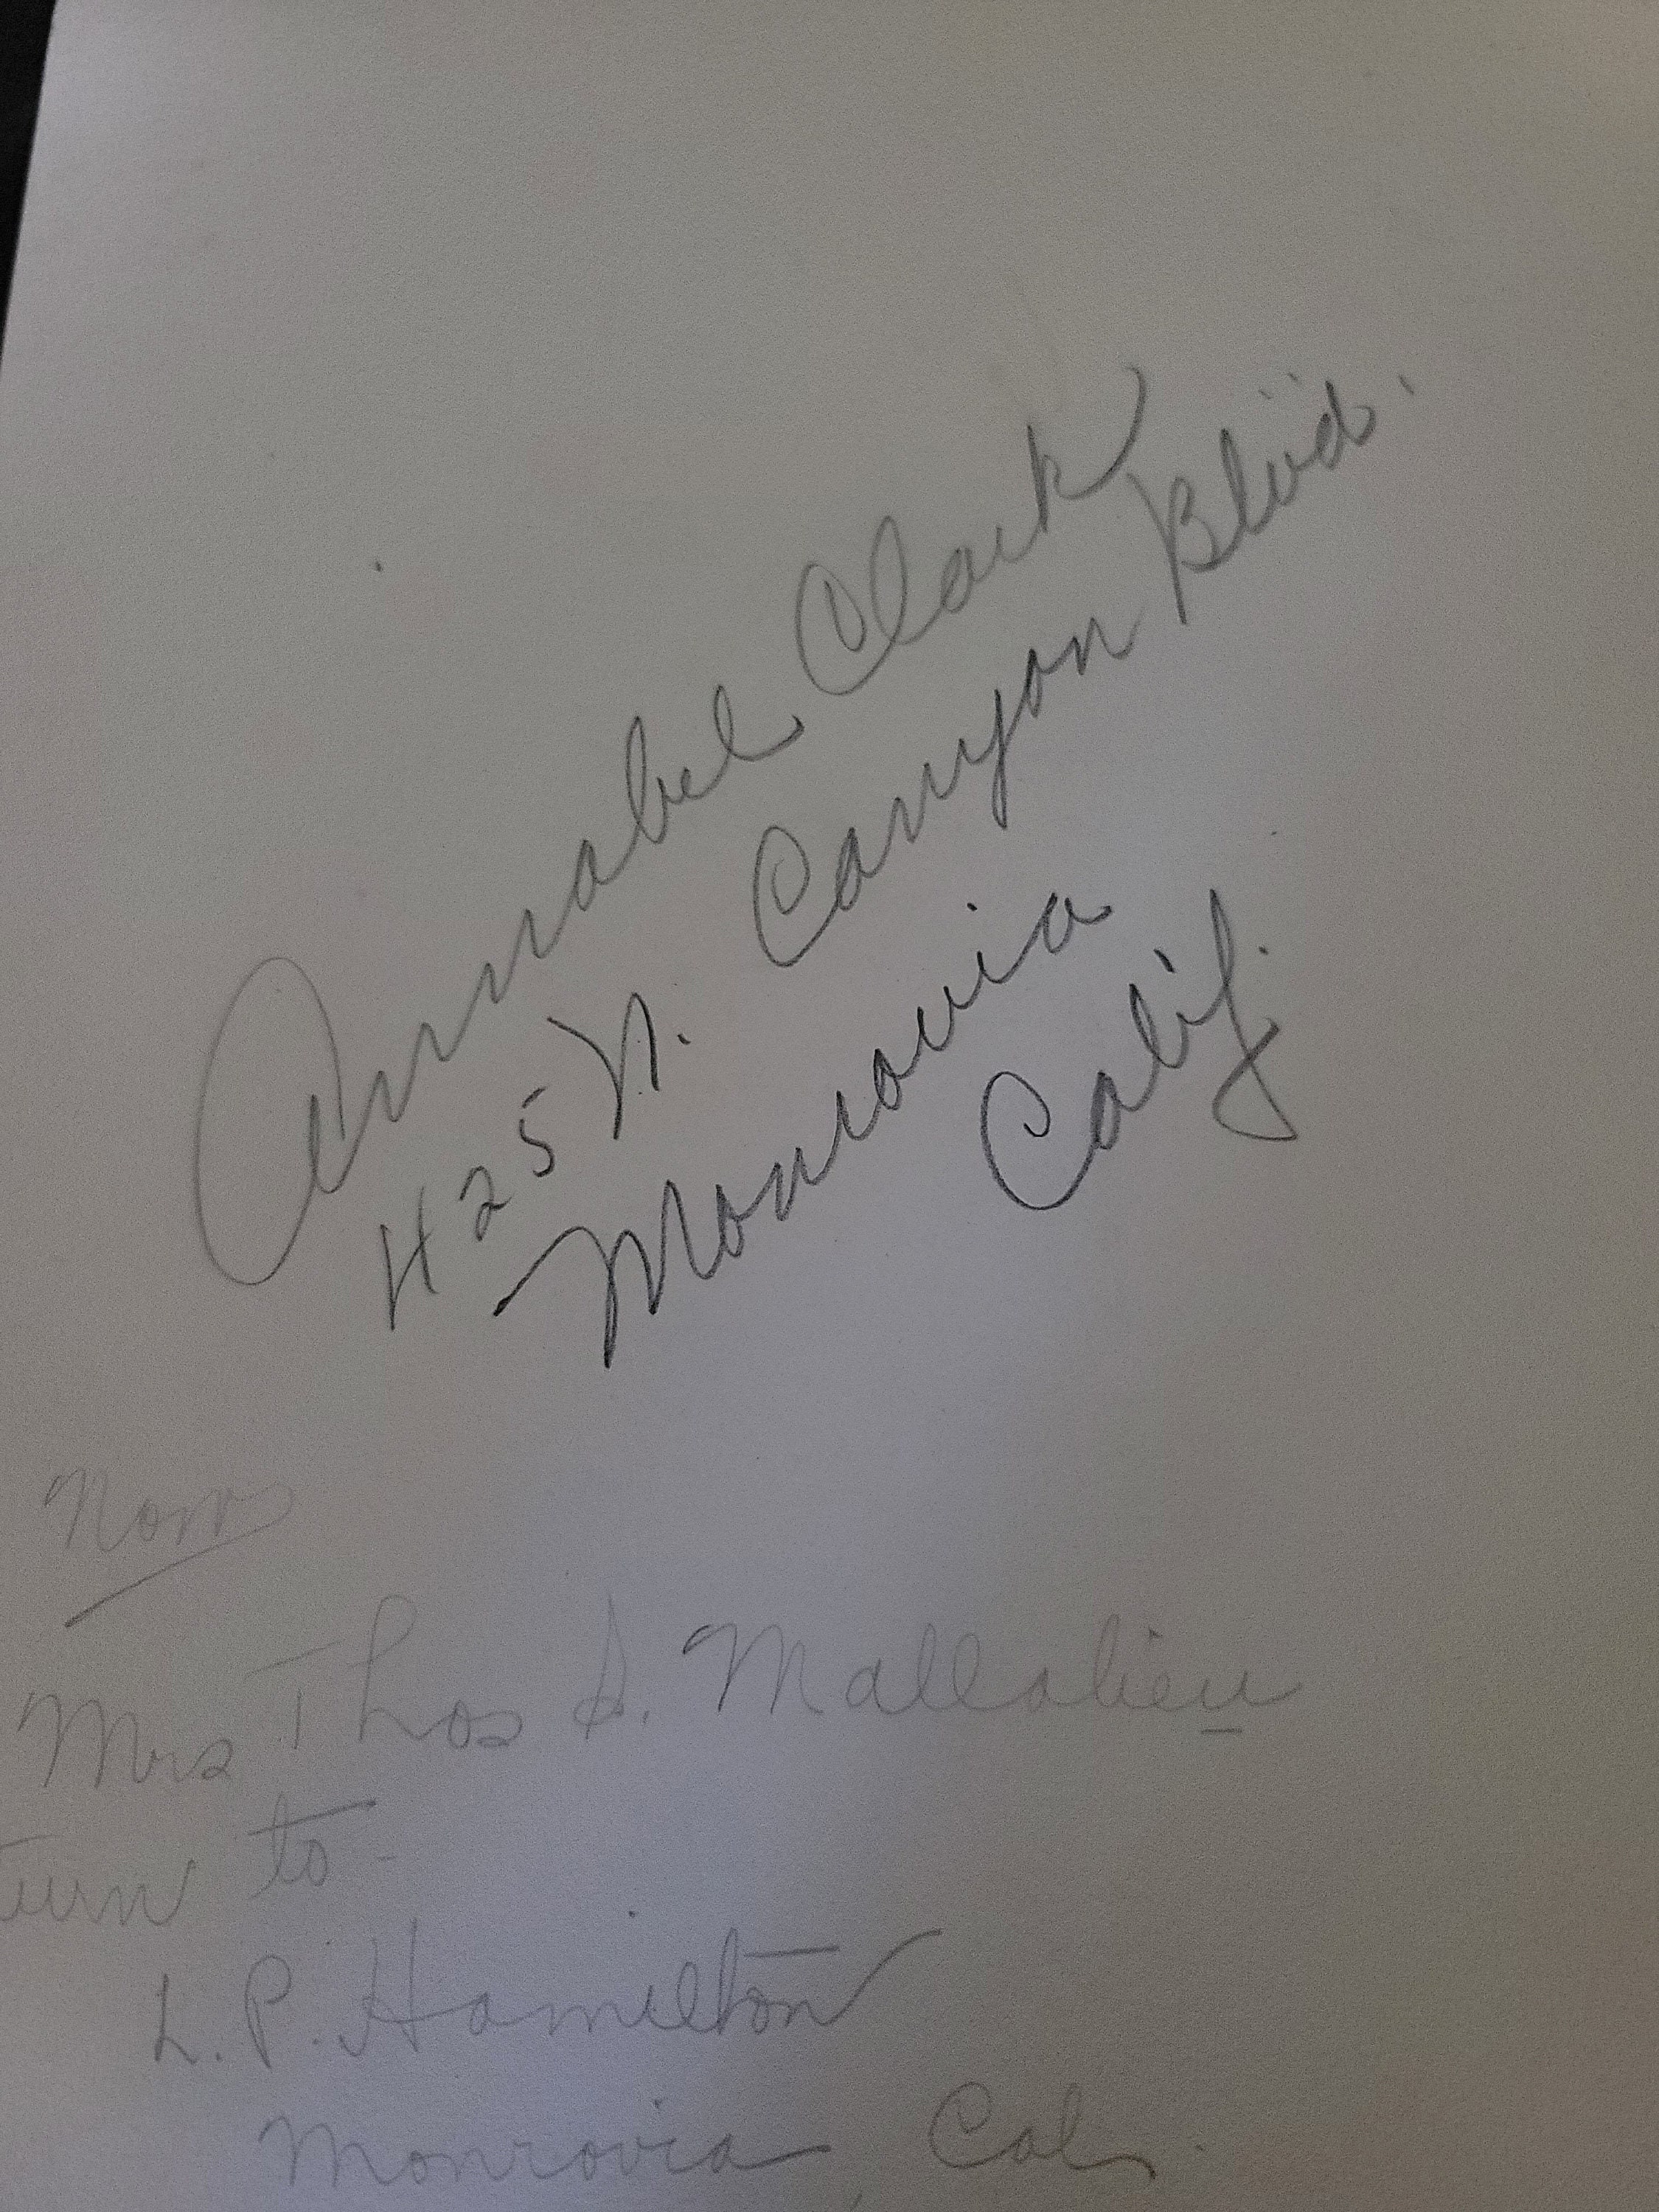 Annabel Clark
425 N. Canyon Blvd.
Monrovia
Calif.
Now
Mrs Thos S. Mallalieu
turn to -
L. P. Hamilton
Monrovia, Cal.